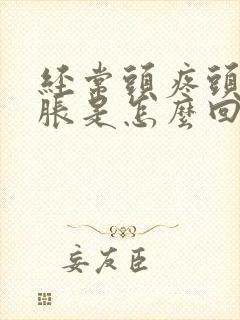 经常頭疼頭
脹是怎麼回
妄友臣